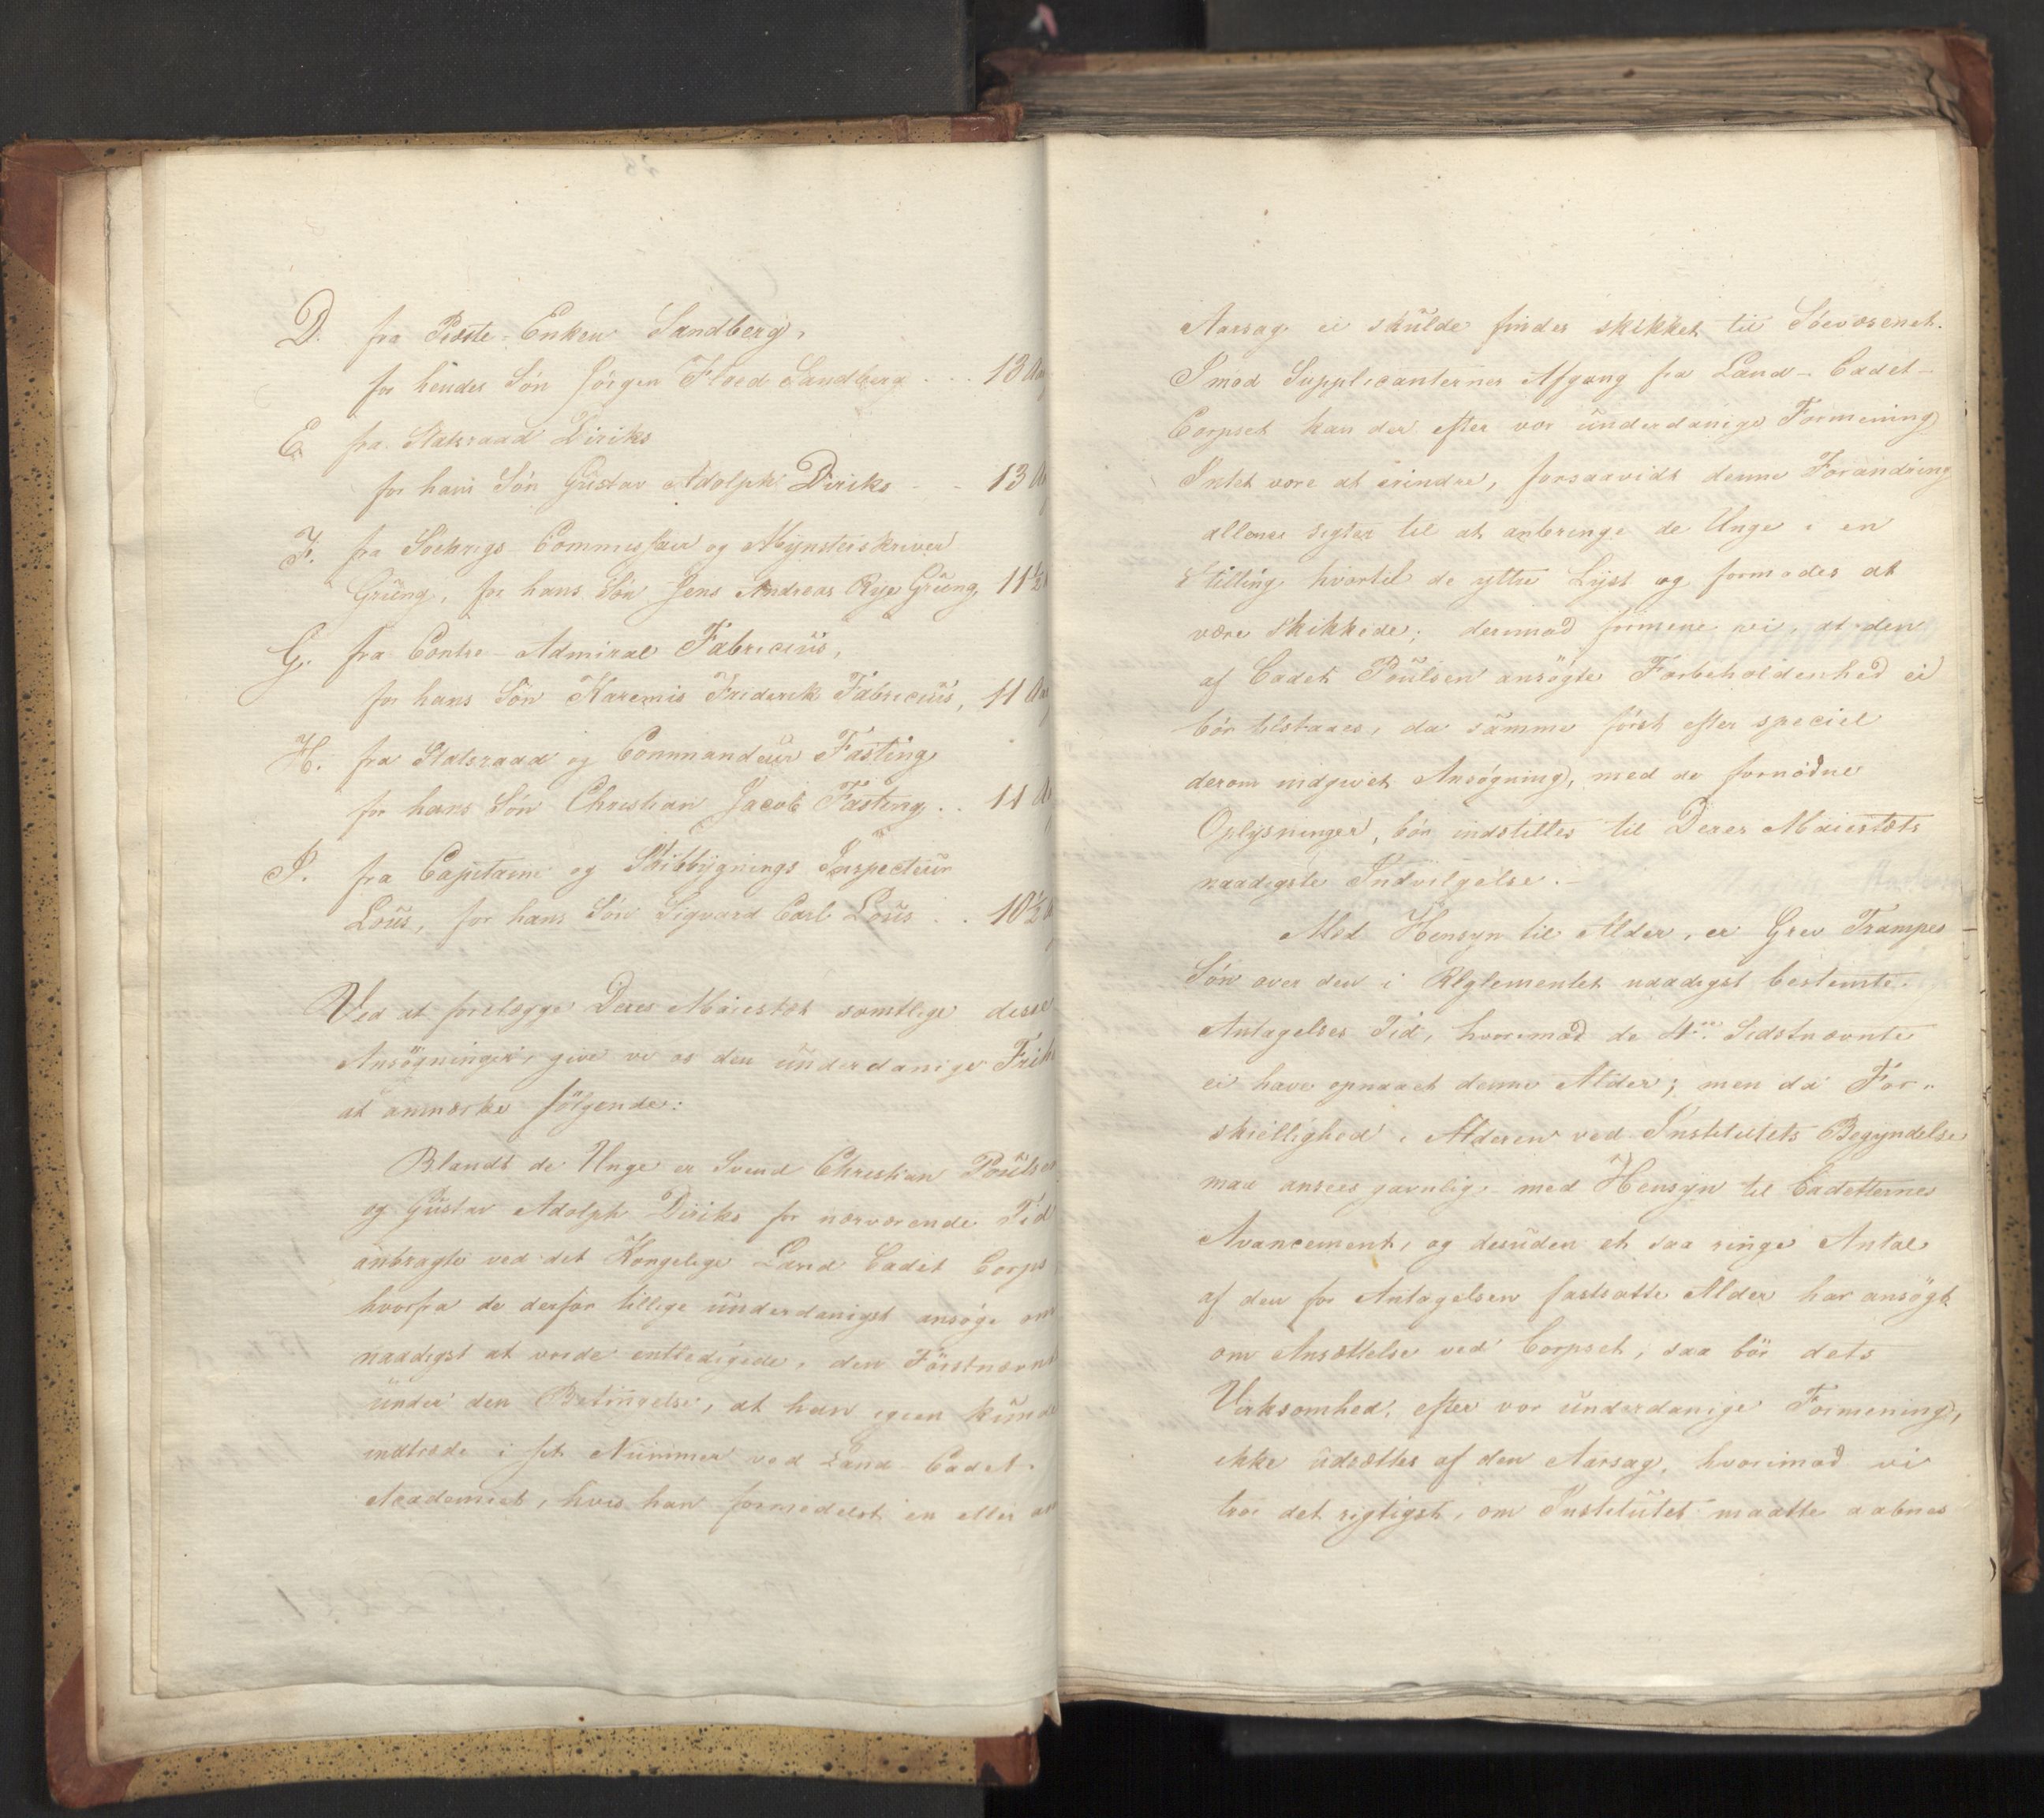 D. fra Præste-Enken Sandberg,
for hendes Søn Jørgen Floed Sandberg . . . 13 Aar
E. fra Statsraad Diriks
for hans Søn Gustav Adolph Diriks - - 13 Aa
F. fra Søekrigs Commissair og Mynsterskriver
Grüng, for hans Søn Jens Andreas Rye Grüng, 11½
G. fra Contre-Admiral Fabricius,
for hans Søn Karemis Friderik Fabricius, 11 Aar
H. fra Statsraad og Commandeur Fasting
for hans Søn Christian Jacob Fasting . . 11 Aa
I. fra Capitaine og Skibbygnings Inspecteur
Lous, for hans Søn Sigvard Carl Lous . . 10½ A
Ved at forelægge Deres Maiestæt samtlige disse
Ansøgninger, give vi os den underdanige Frih
at anmærke følgende:
Blandt de Unge er Svend Christian Poulse
og Gustav Adolph Diriks for nærværende Tid
anbragte ved det Kongelige Land Cadet Corps
hvorfra de derfor tillige underdanigst ansøge om
naadigst at vorde entledigede, den Førstnævnt
under den Betingelse, at han igien kunde
indtræde i sit Nummer ved Land Cadet-
Academiet, hvis han formedelst en eller an
Aarsag ei skulde findes skikket til Søevæsenet.
Imod Supplicanternes Afgang fra Land-Cadet-
Corpset kan der efter vor underdanige Formening
Intet være at erindre, forsaavidt denne Forandring
allene sigter til at anbringe de Unge i en
Stilling hvortil de yttre Lyst og formodes at
være skikkede; derimod formene vi, at den
af Cadet Poulsen ansøgte Forbeholdenhed ei
bør tilstaaes, da samme først efter speciel
derom indgivet Ansøgning, med de fornødne
Oplysninger, bør indstilles til Deres Maiestæts
naadigste Indvilgelse.-
Med Hensyn til Alder, er Grev Trampes
Søn over den i Reglementet naadigst bestemte
Antagelses Tid, hvorimod de 4re Sidstnævnte
ei have opnaaet denne Alder; men da For-
skiellighed i Alderen ved Institutets Begyndelse
maa ansees gavnlig med Hensyn til Cadetternes
Avancement, og desuden et saa ringe Antal
af den for Antagelsen fastsatte Alder har ansøgt
om Ansættelse ved Corpset, saa bør dets
Virksomhed, efter vor underdanige Formening,
ikke udsættes af den Aarsag, hvorimod vi
troe det rigtigst, om Institutet maatte aabnes